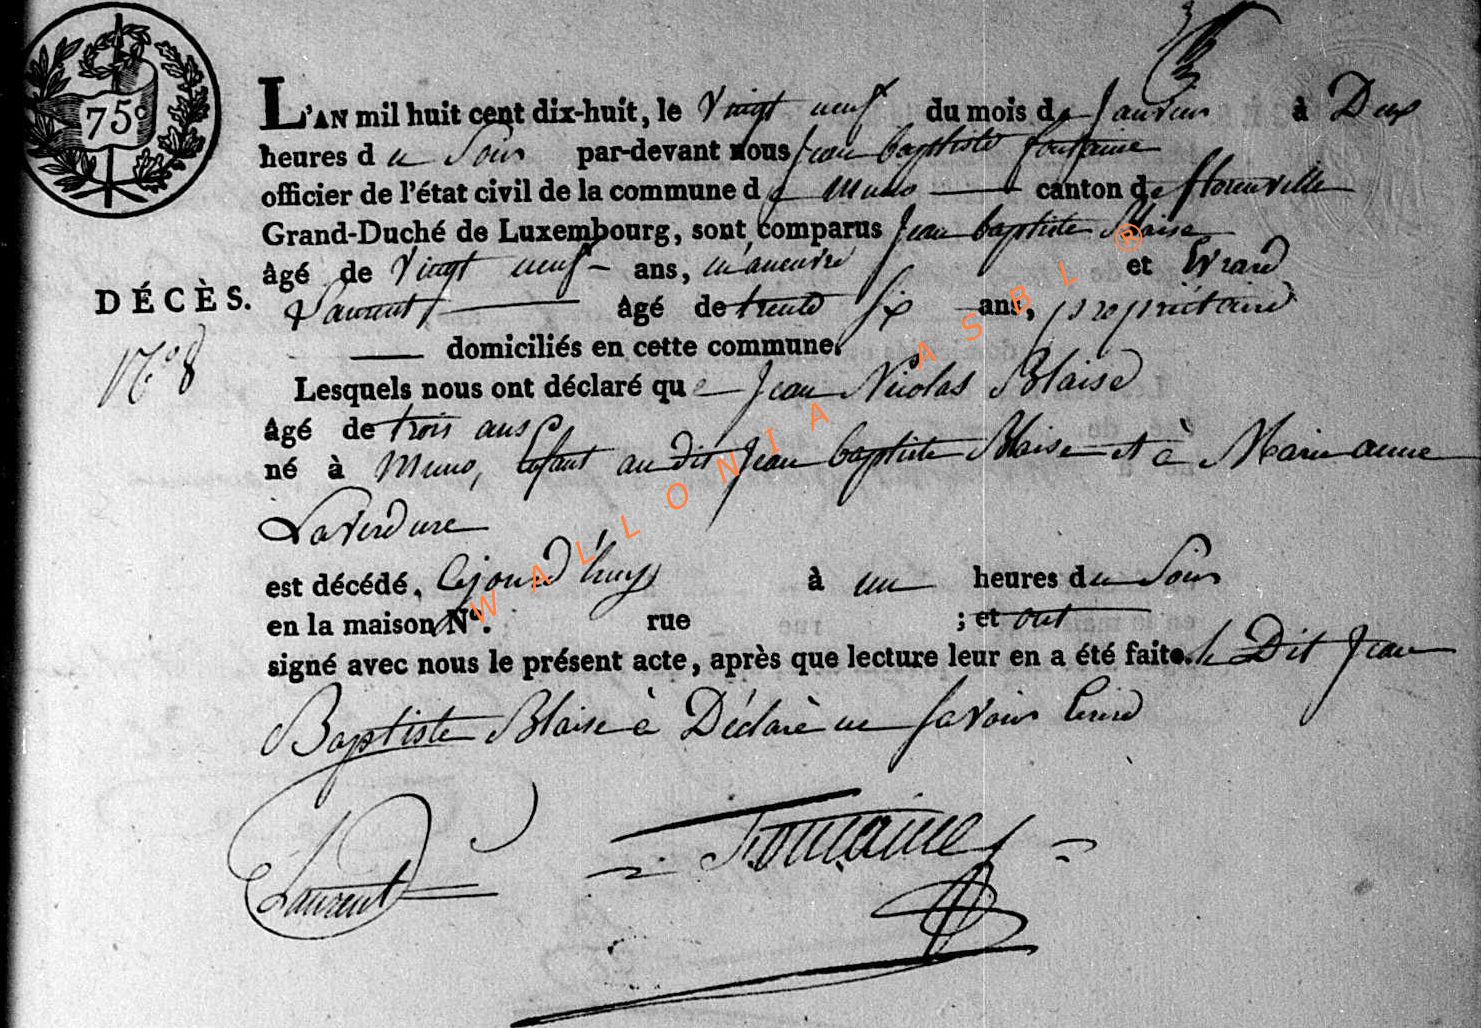 75c
L'AN mil huit cent dix-huit, le Vingt neuf du mois de Janvier à Deux
heures du Soir par-devant nous Jean baptiste fontaine
officier de l'état civil de la commune de Muno canton de florenville
Grand-Duché de Luxembourg, sont comparus Jean baptiste Blaise
âgé de Vingt neuf ans, manœuvre et Evrard
Laurent âgé de trente six ans, propriétaire
domiciliés en cette commune.
DÉCÈS.
N.o 8
Lesquels nous ont déclaré que Jean Nicolas Blaise
âgé de trois ans
né à Muno, Enfant au dit Jean baptiste Blaise et à Marie anne
Laverdure
est décédé, Cejourd'huy à un heures du Soir
en la maison No. rue ; et ont
signé avec nous le présent acte, après que lecture leur en a été faite. le Dit Jean
Baptiste Blaise à Déclarè ne Savoir Ecrire
Laurent Fontaine
WALLONIA ASBL ®